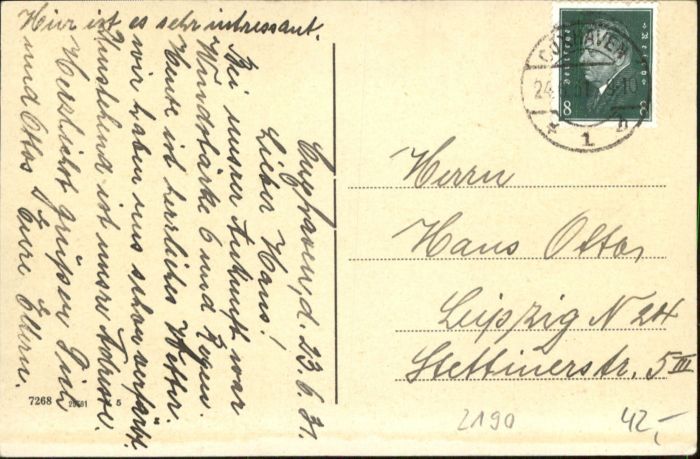 Cuxhaven, d. 23.6.31.
Lieber Hans!
Bei unsrer Ankunft war
Windstärke 6 und Regen.
Heute ist herrliches Wetter.
wir haben uns schon erfärbt.
Umstehend ist unsre Adresse.
Herzlichst grüßen Dich
und Ottos Eure Eltern.
Hier ist es sehr intressant.
Herrn
Hans Otto,
Leipzig N 24
Stettinerstr. 5 III
CUXHAVEN
24.6.31
* 1 h
Deutsches Reich
8 8
7268 5
2190
42,-